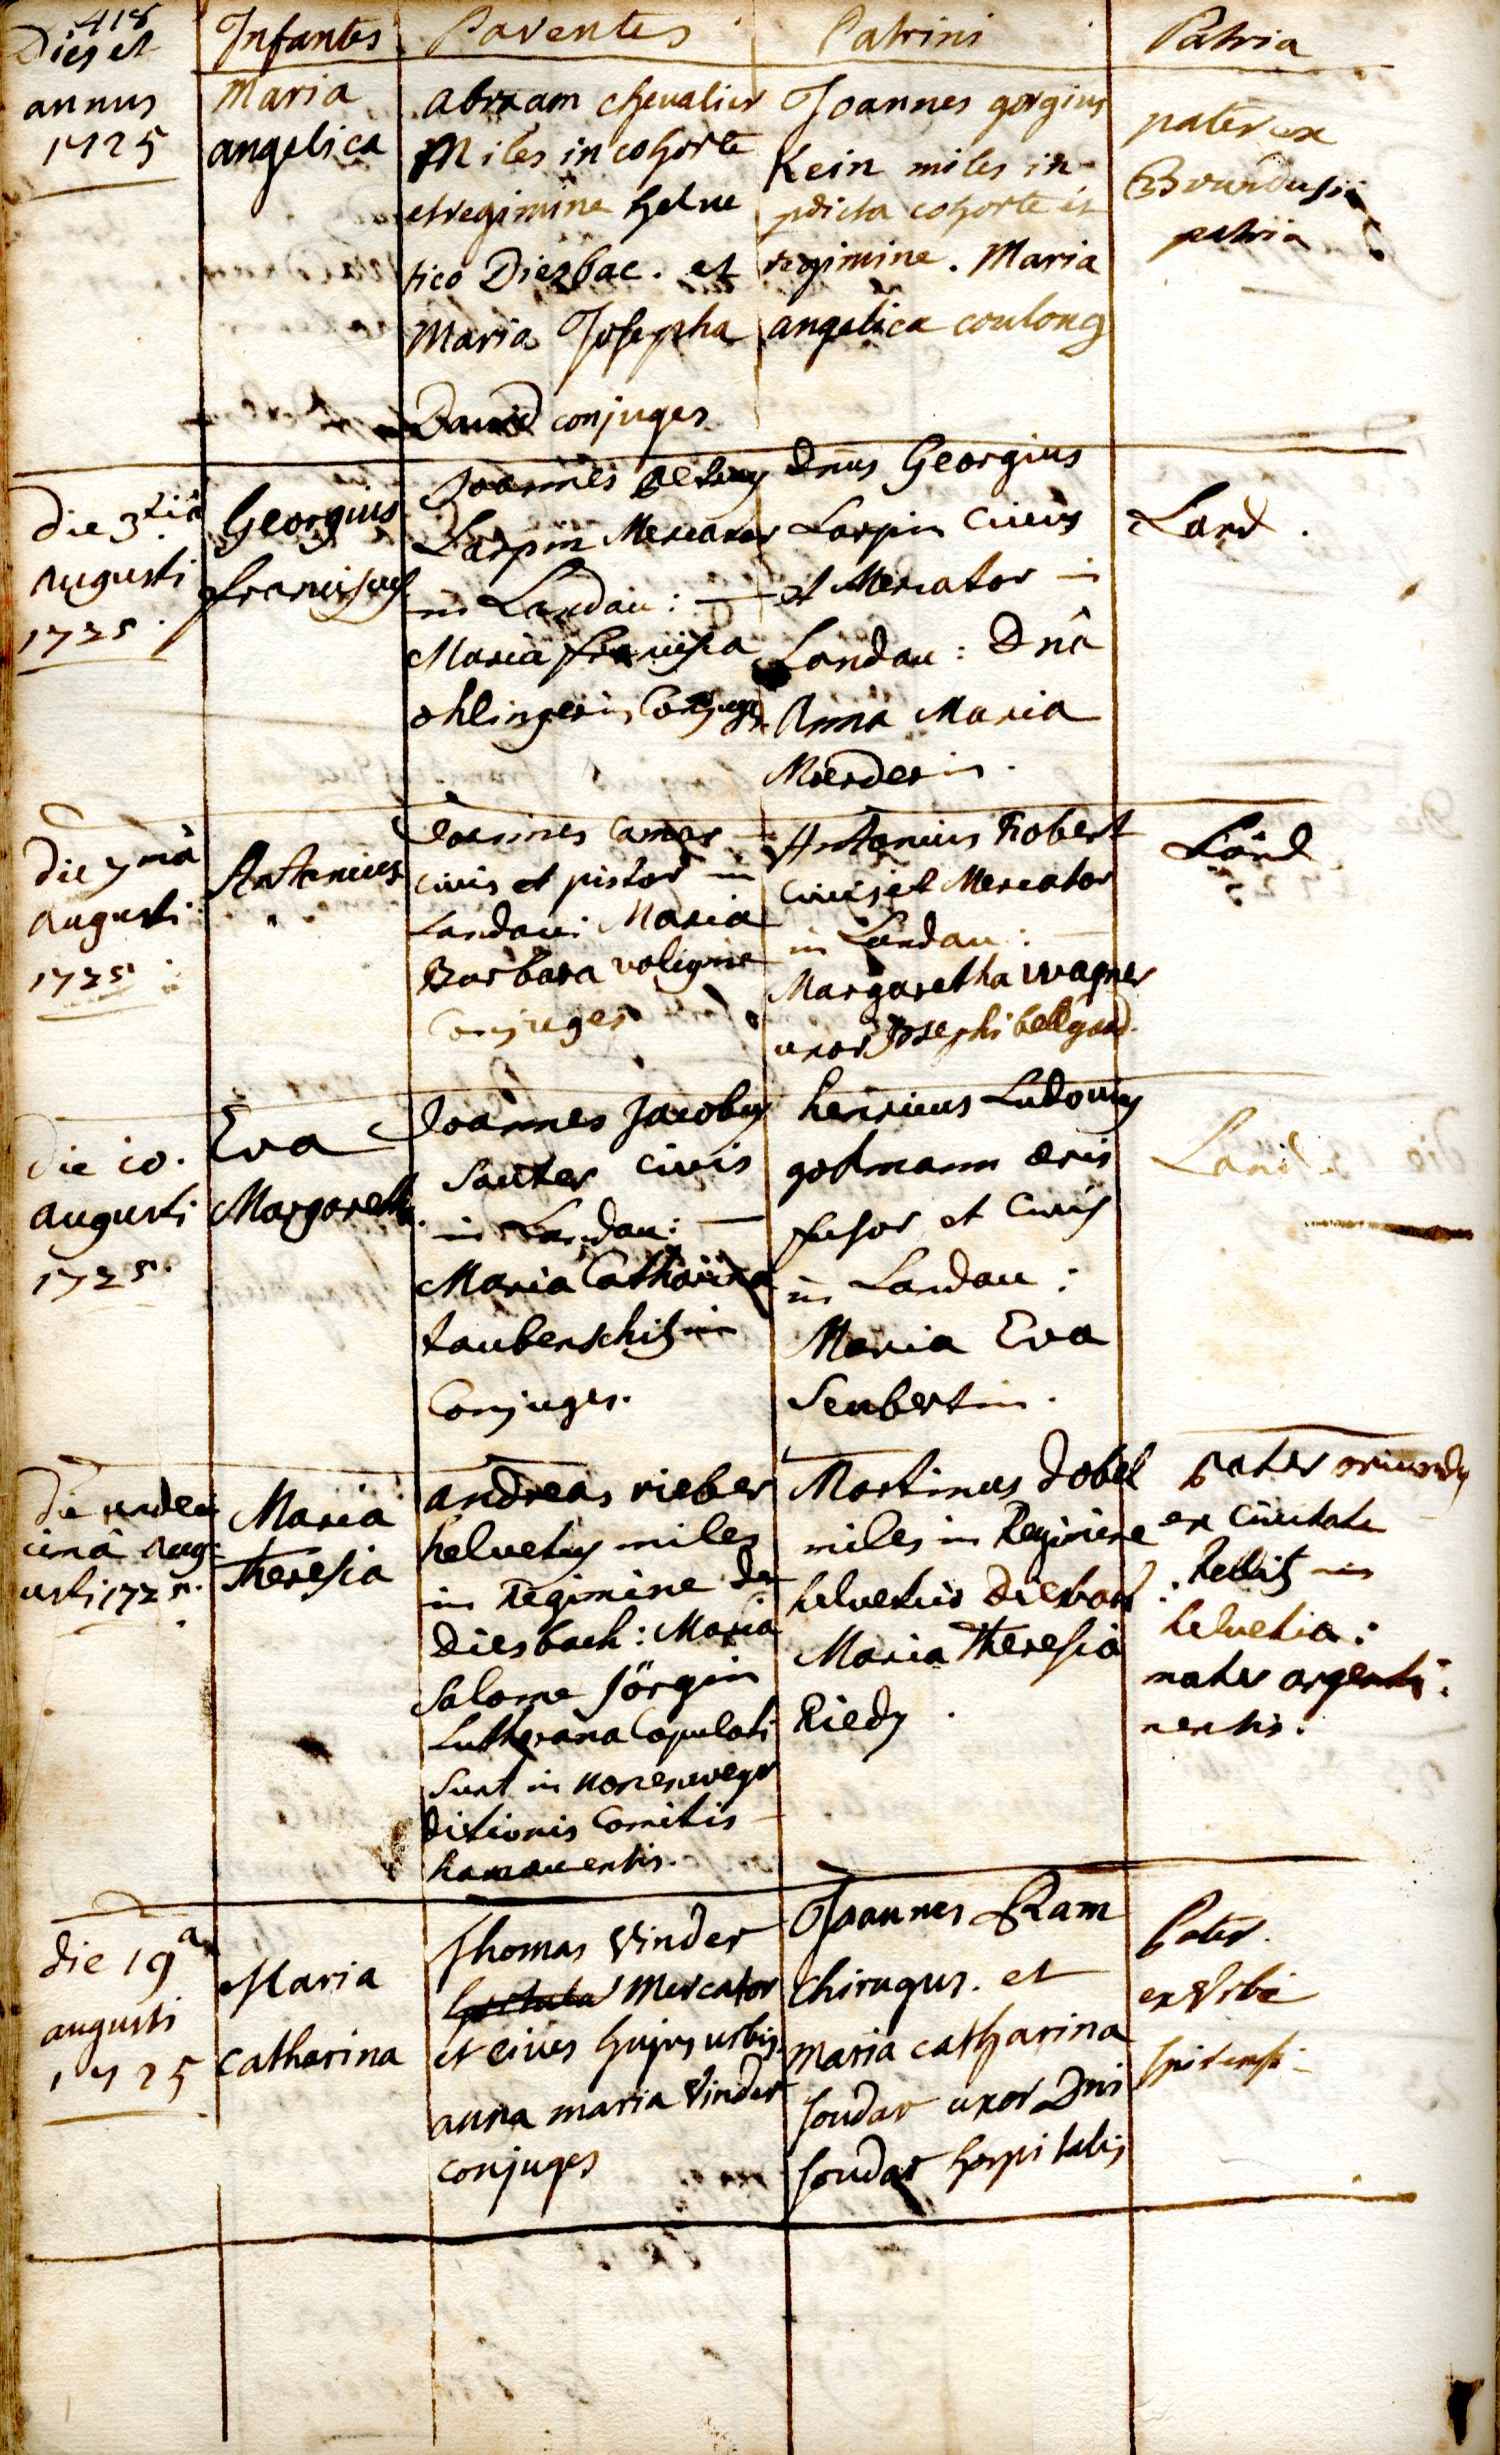 418
Dies et
annus
1725
Infantes
Parentes
Patrini
Patria
Maria
angelica
abraam chevalier
Miles in cohorte
et regimine helve
tico Diesbac. et
Maria Josepha
David conjuges
Joannes gorgius
Kein miles in
pdicta cohorte et
regimine. Maria
angelica coulong
pater ex
patria
die 3tiâ
Augusti
1725.
Georgius
franciscus
Joannes
Larpin Mercator
in Landau: —
Maria francisca
ohlingerin Conjuges.
Dnus Georgius
Larpin Civis
et Mercator in
Landau: Dnâ
Anna Maria
Merderin.
Land.
die 7mâ
Augusti
1725
Antonius
Joannes
civis et pistor in
Landau: Maria
Barbara voligine
Conjuges
Antonius Robert
civis et Mercator
in Landau: —
Margaretha wagner
uxor Josephi bellgard.
Land
die 10.
Augusti
1725.
Eva
Margareth.
Joannes Jacobus
Sauter civis
in Landau: —
Maria Catharina
tauberschitzin
Conjuges.
henricus Ludovicus
gotmann æris
fusor et Civis
in Landau:
Maria Eva
Seubertin.
Land.
die unde
cimâ Aug:
usti 1725.
Maria
Theresia
andreas rieber
helvetus miles
in Regimine de
diesbach: Maria
Salome Jörgin
Lutherana Copulati
Sunt in
ditionis Comitis
hanauensis.
Martinus dobel
miles in Regimine
helvetico diesbach:
Maria Theresia
Riedy.
pater oriundus
ex civitate
in
helvetia:
mater argenti:
nensis.
die 19a
augusti
1725
Maria
catharina
Thomas Vinder
Mercator
et cives hujus urbis.
anna maria Vinder
conjuges
Joannes Ram
Chirugus. et
maria catharina
soudar uxor Dni
soudar hospitalis
Pater.
ex Urbe
spirensi